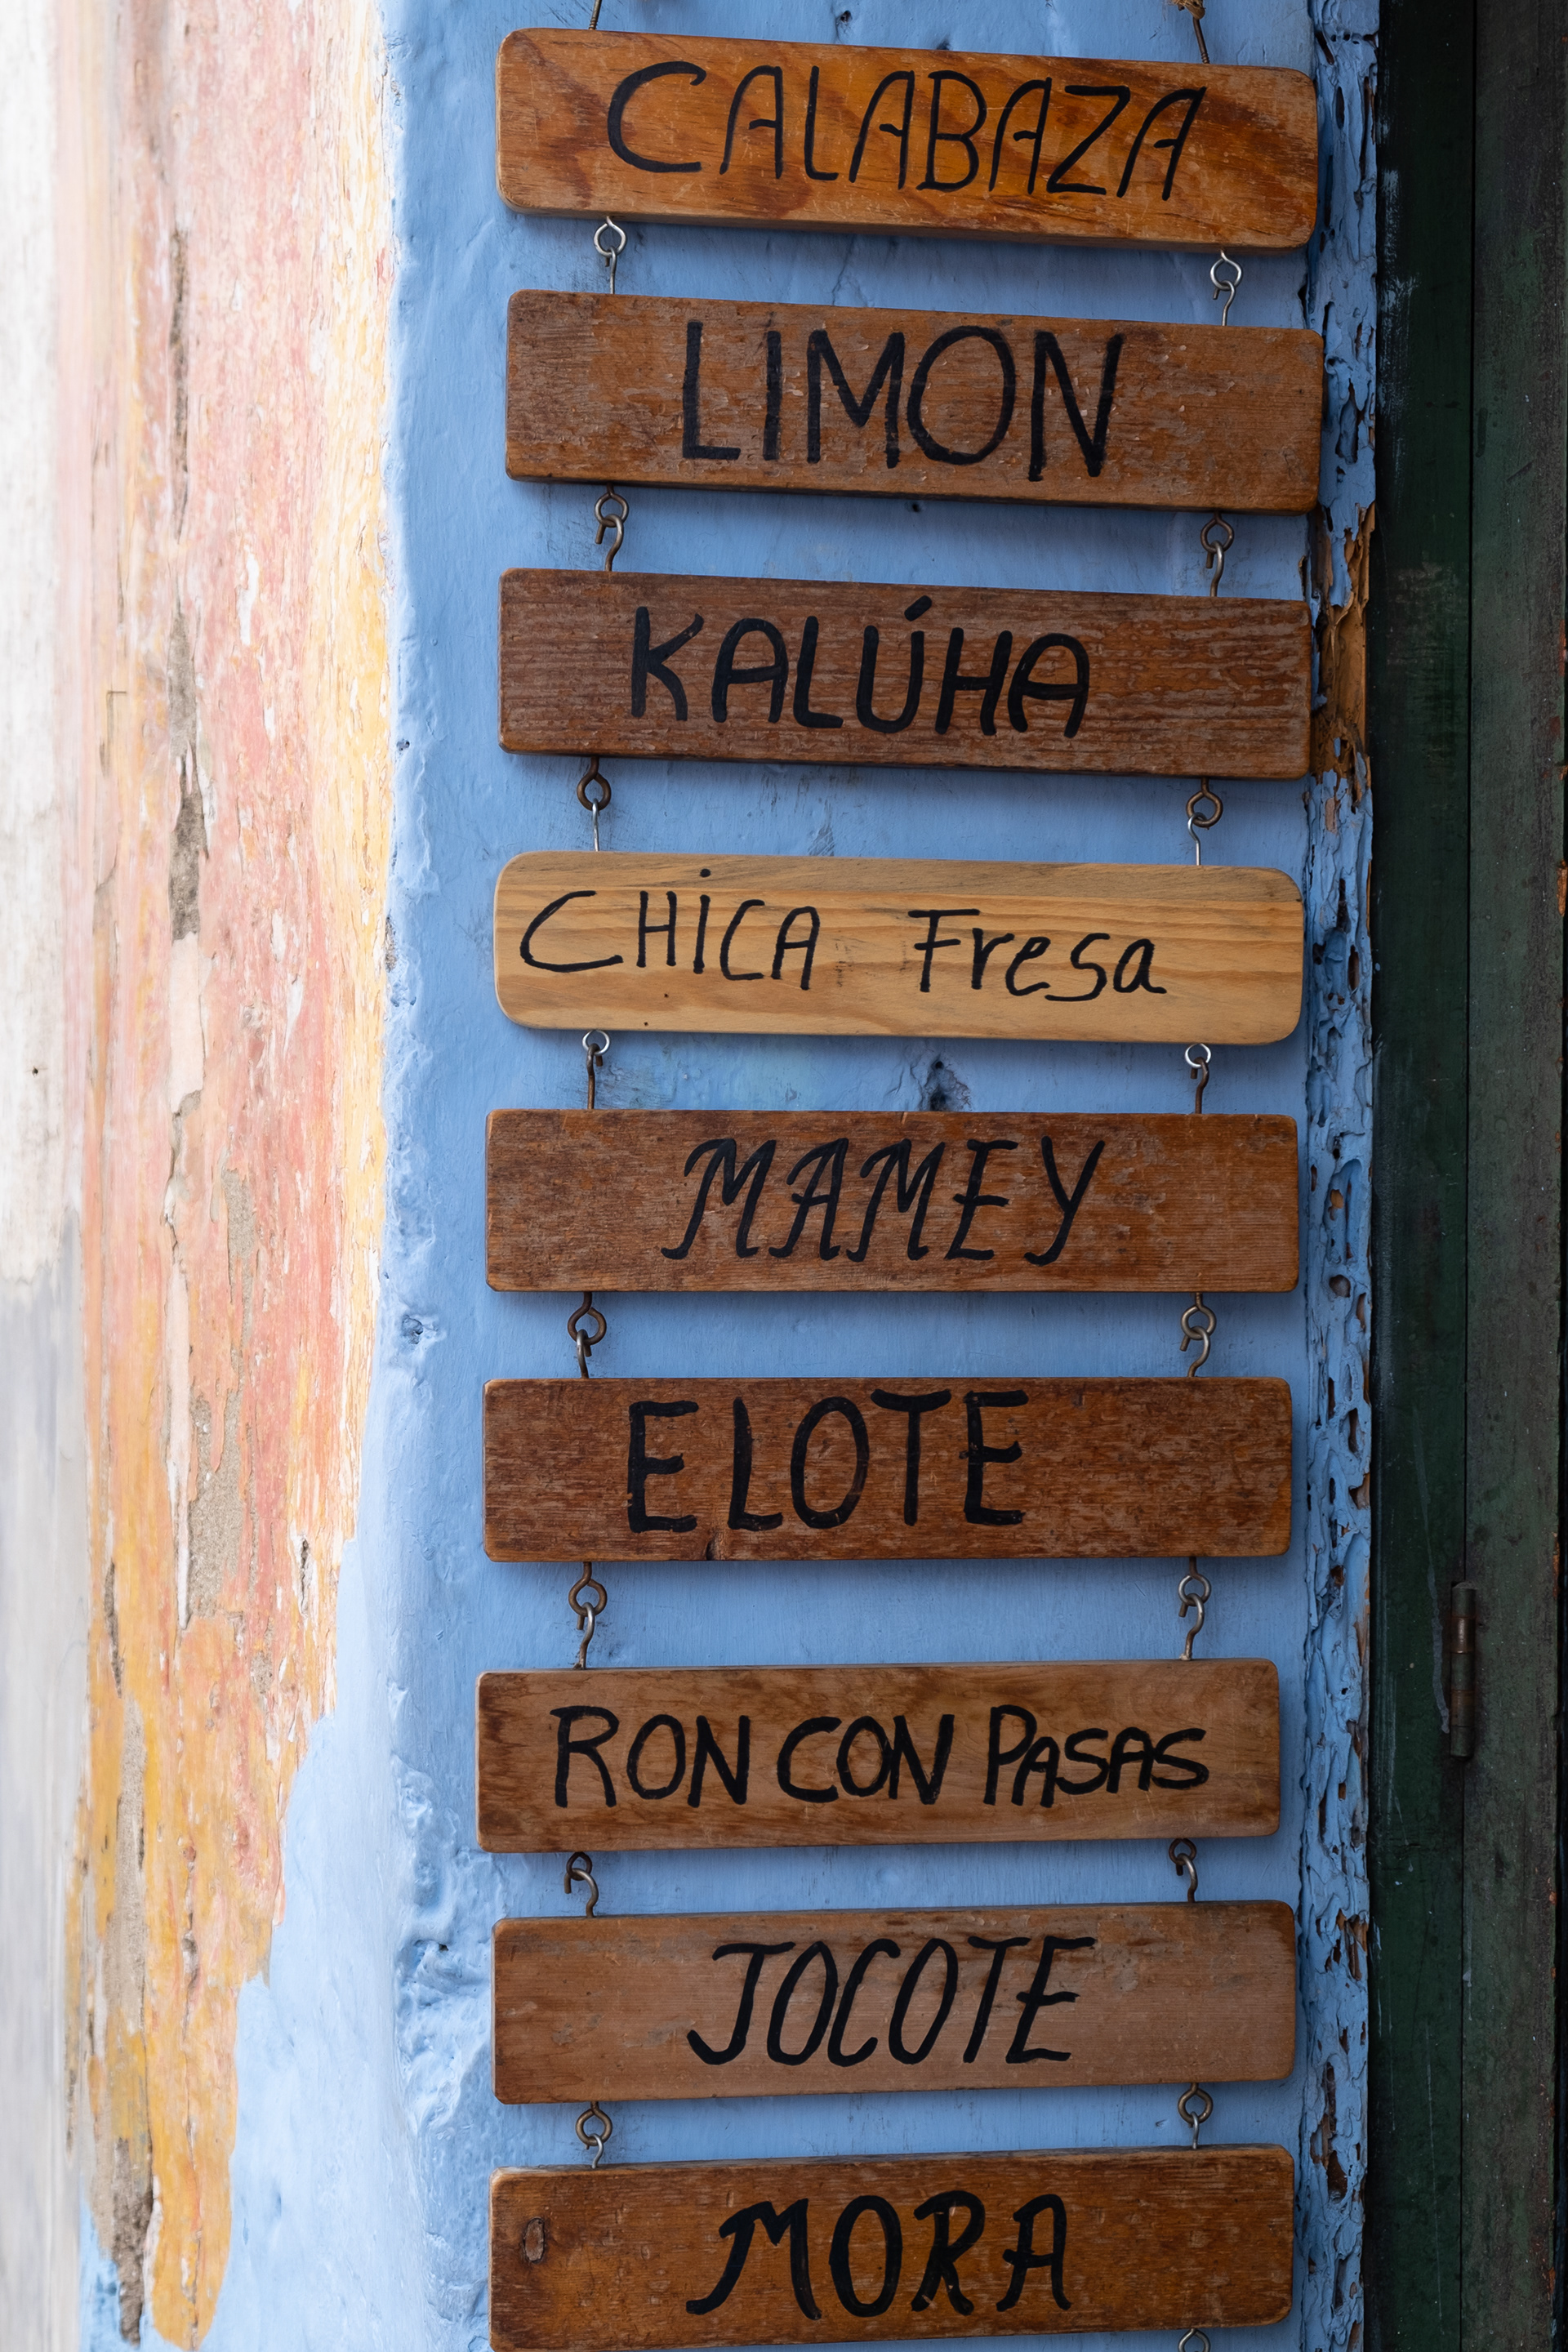 CALABAZA
LIMON
KALÚHA
CHiCA Fresa
MAMEY
ELOTE
RON CON PASAS
JOCOTE
MORA